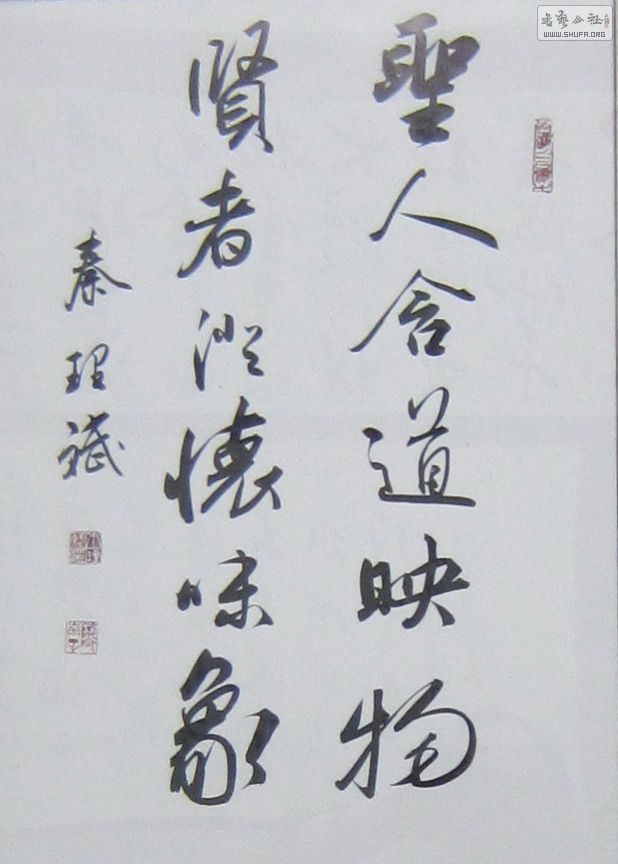 聖人含道映物
賢者澄懷味象
秦理斌
書藝公社
WWW.SHUFA.ORG